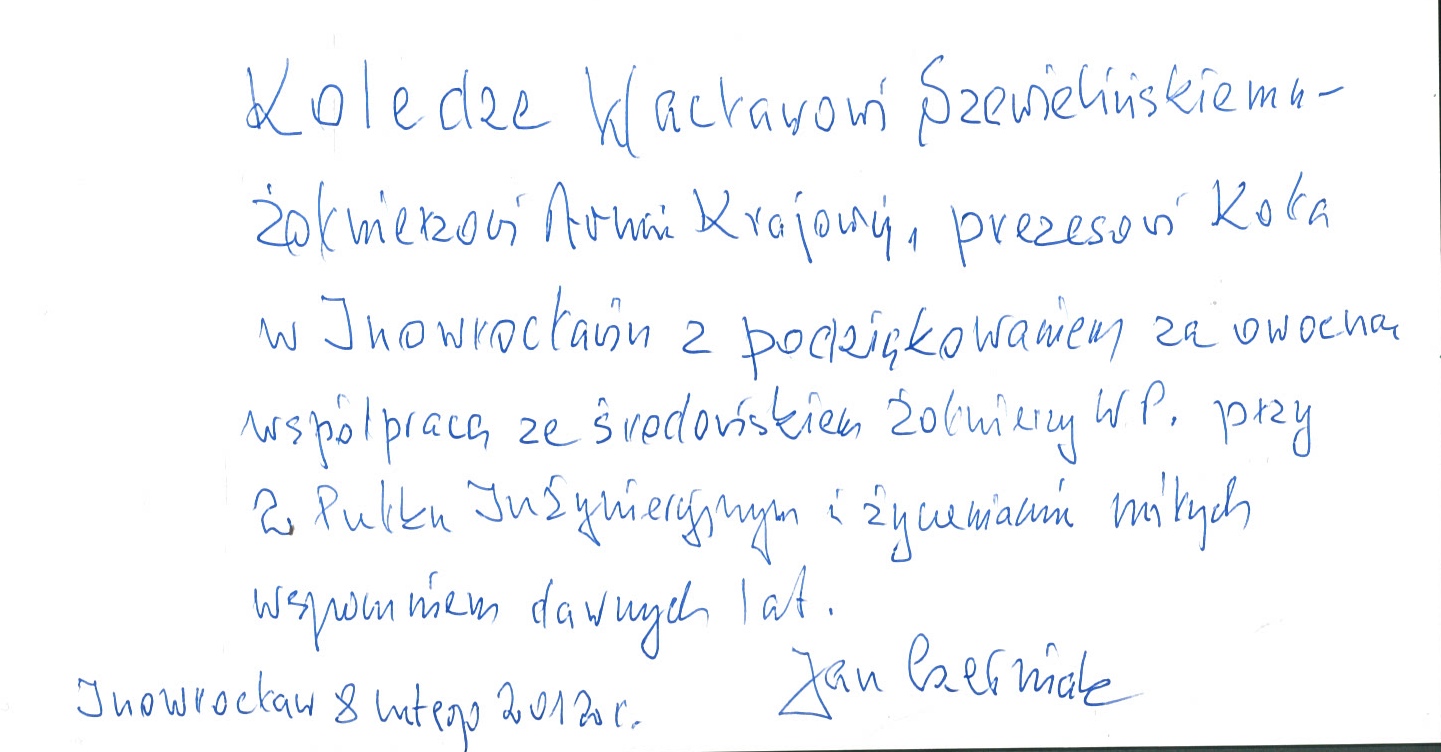 Koledze Wacławowi Szewielińskiemu -
żołnierzowi Armii Krajowej, prezesowi Koła
w Inowrocławiu z podziękowaniem za owocną
współpracę ze środowiskiem żołnierzy W P. przy
2. Pułku Inżynieryjnym i życzeniami miłych
wspomnień dawnych lat.
Jan
Inowrocław 8 lutego 2012 r.